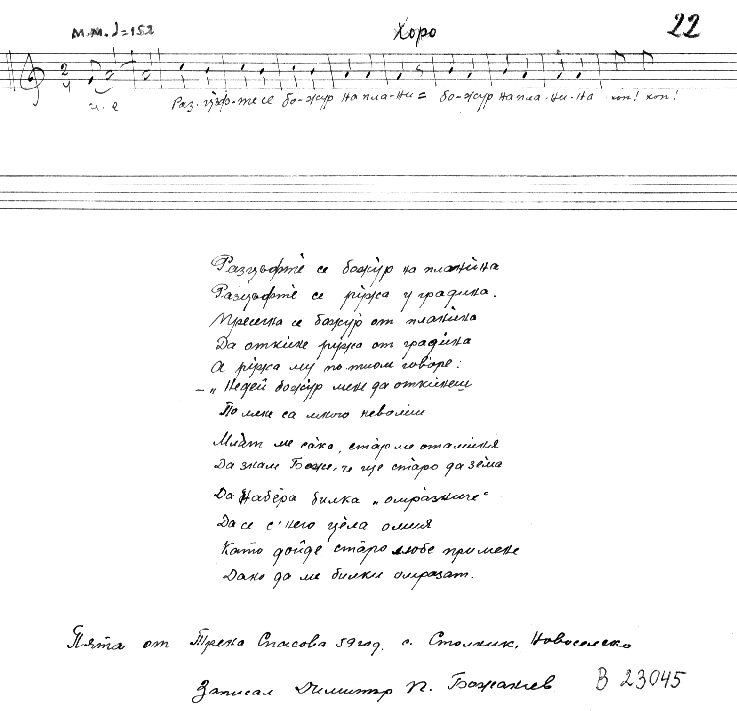 М.М. ♩=152 Хоро 22
и. е Раз-цъф-те се бо-жур на пла-ни= бо-жур на пла-ни-на хоп! хоп!
Разцъфтѐ се божу̀р на планѝна
Разцъфтѐ се ру̀жа у градина.
Пресегна се божу̀р от планѝна
Да откѝне ру̀жа от градѝна
А ру̀жа му по тиом гово̀ре:
– „Недей божу̀р мене да откѝнеш
По мене са много неволии
Мла̀т ме са̀ка, ста̀р ме
Да знам Боже, че ще ста̀ро да зѐма
Да Набѐра билка „омра̀зниче“
Да се с' него цѐла омия
Като до̀йде ста̀ро любе при мене
Дано да ме билки омразат.
Пята от Трена Спасова 59 год. с. Столник, Новоселско
Записал Димитър П. Божанов В 23045